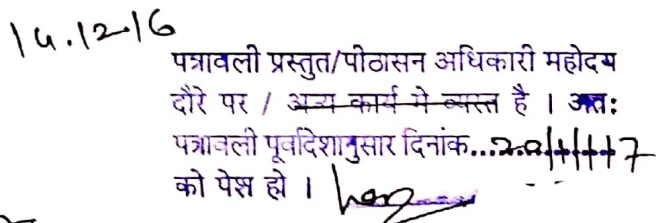 14.12.16
पत्रावली प्रस्तुत/पीठासन अधिकारी महोदय
दौरे पर / अन्य कार्य मे व्यस्त है । अत:
पत्रावली पूर्वादेशानुसार दिनांक...20/1/17
को पेश हो ।